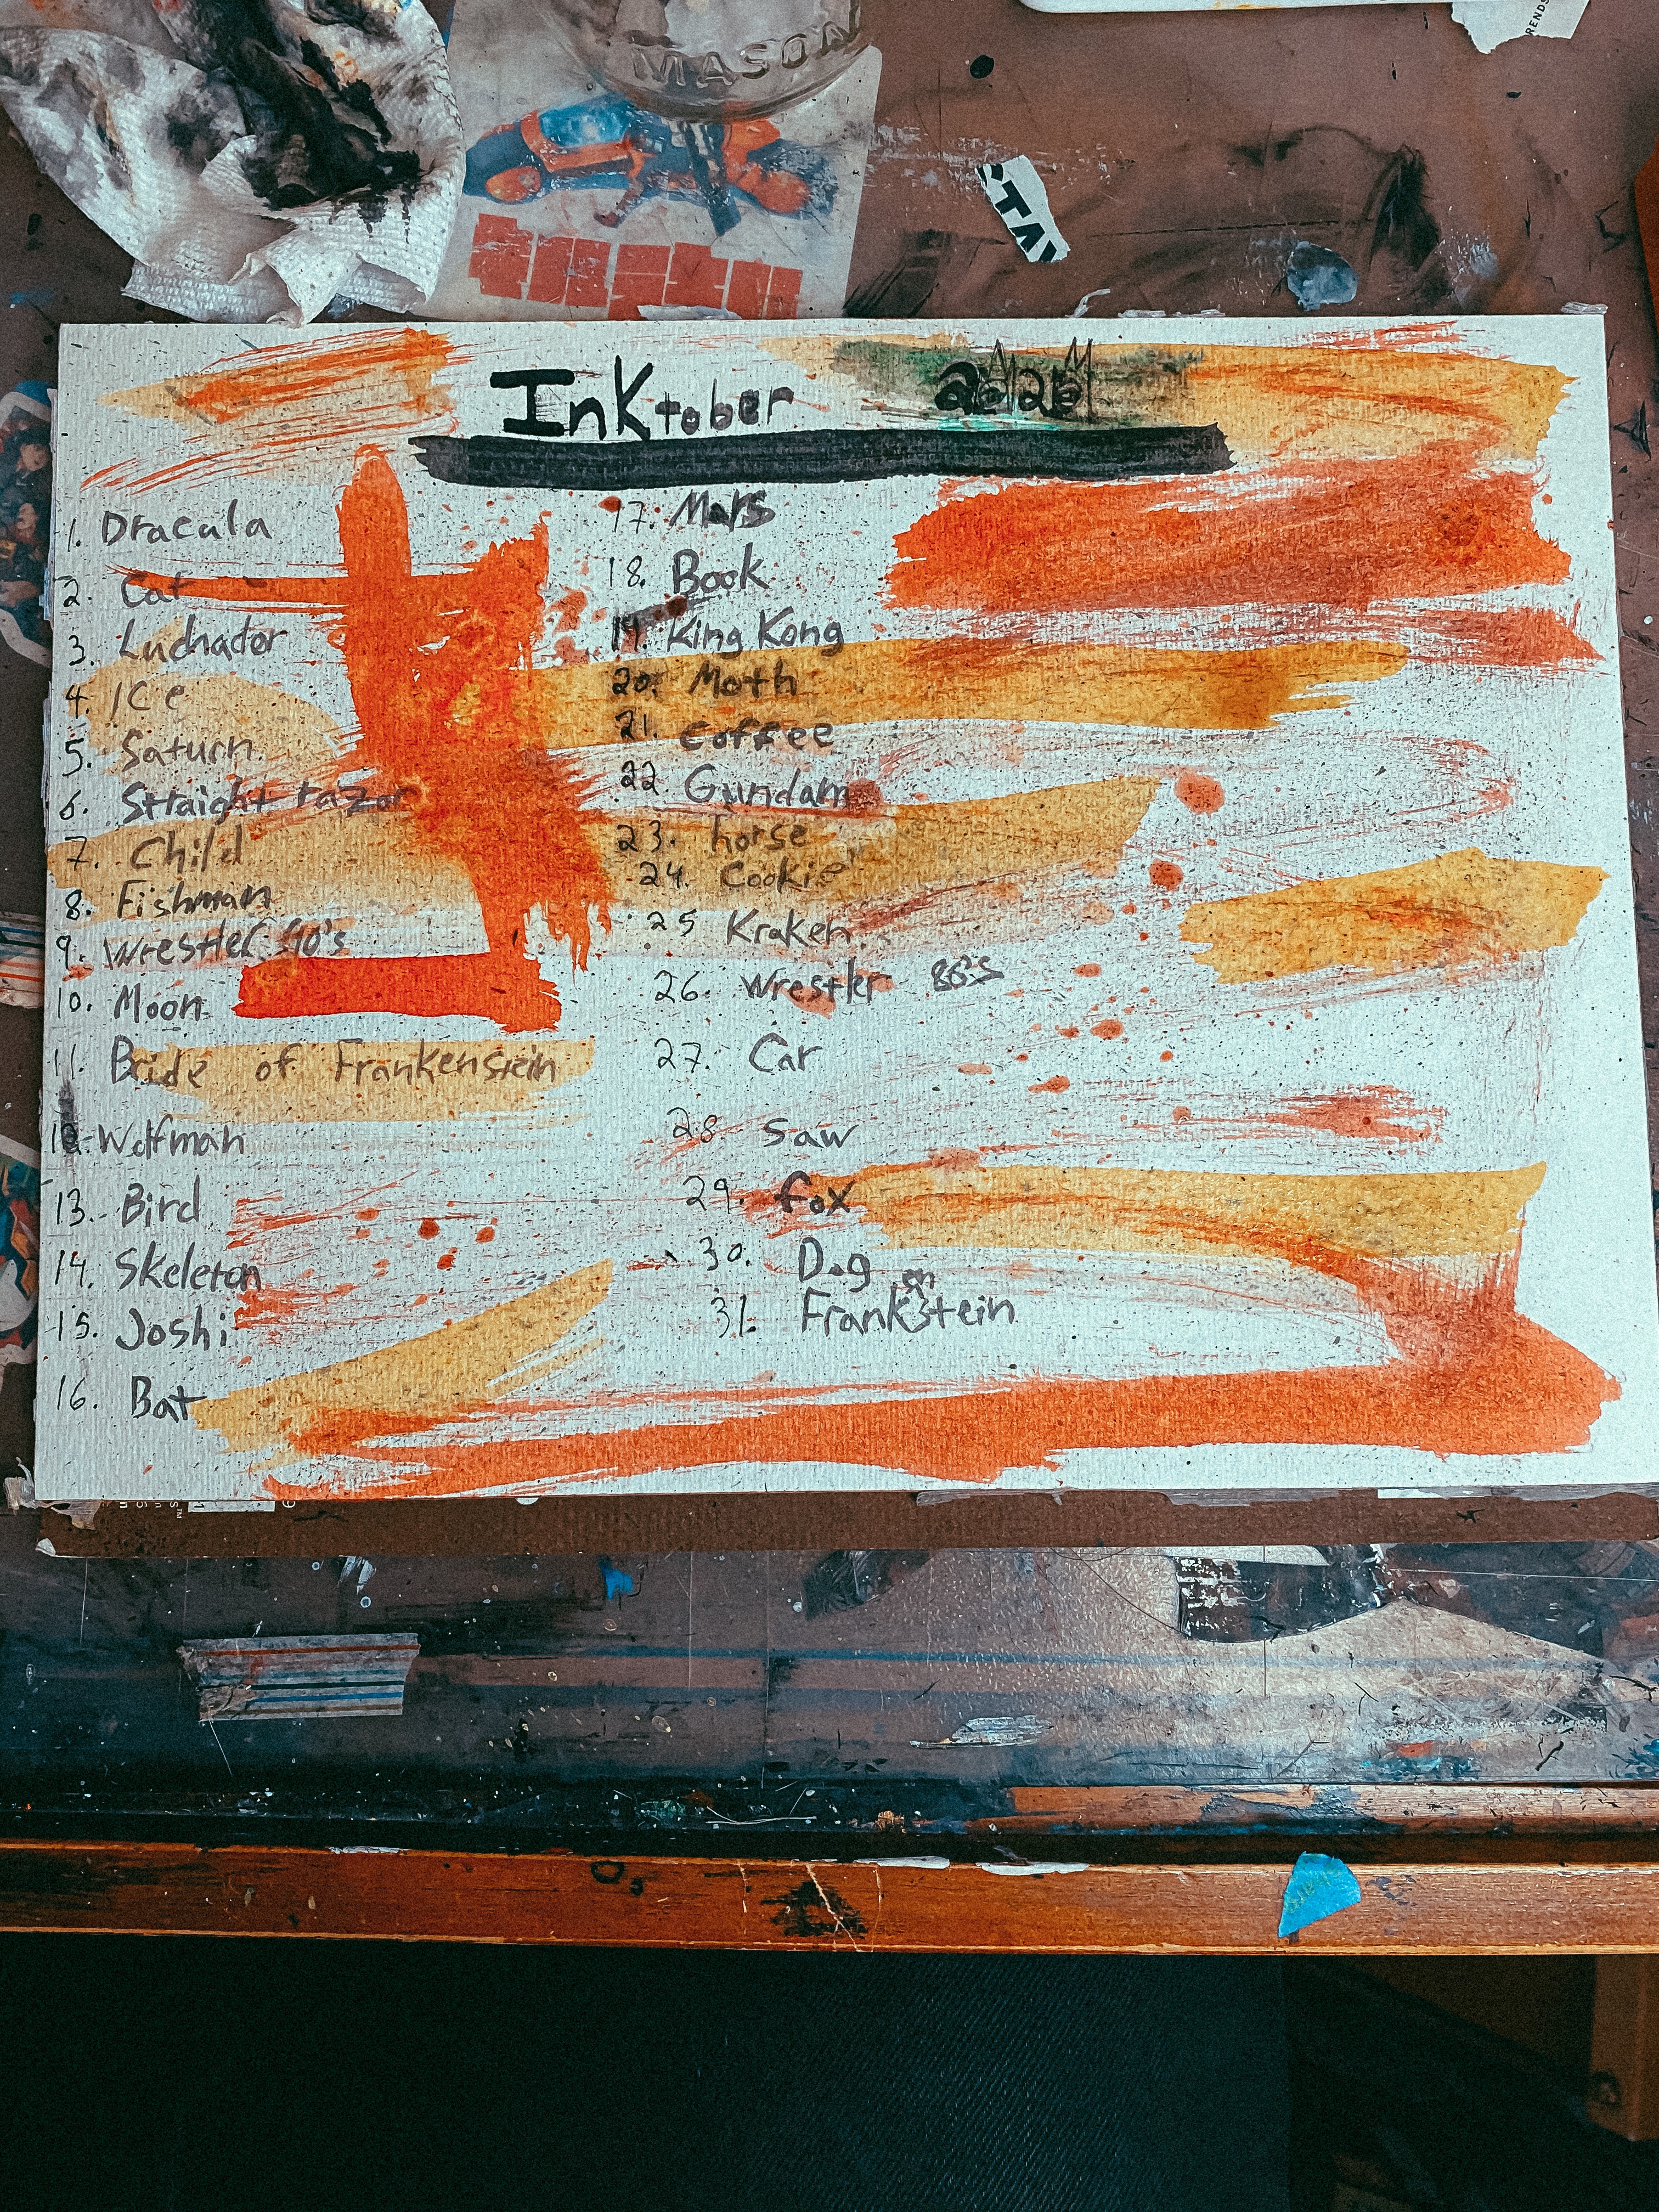 MASON
RENDS
STAY
Inktober
1. Dracula
2. Cat
3. Luchador
4. ICe
5. Saturn
6. Straight razor
7. Child
8. Fishman
9. Wrestler 90's
10. Moon
11. Bride of Frankenstein
12. Wolfman
13. Bird
14. Skeleton
15. Joshi
16. Bat
17. Mars
18. Book
19. King Kong
20. Moth
21. coffee
22 Gundam
23. horse
24. Cookie
25 Kraken
26. Wrestler 80's
27. Car
28 Saw
29. fox
30. Dog
31. Frankenstein